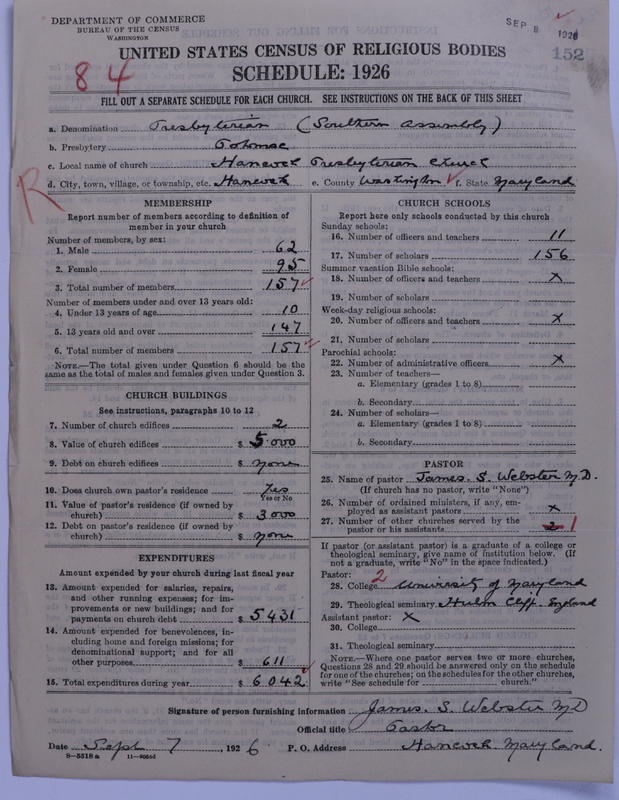 DEPARTMENT OF COMMERCE
BUREAU OF THE CENSUS
WASHINGTON
SEP 8 1926
152
84
UNITED STATES CENSUS OF RELIGIOUS BODIES
SCHEDULE: 1926
FILL OUT A SEPARATE SCHEDULE FOR EACH CHURCH. SEE INSTRUCTIONS ON THE BACK OF THIS SHEET
a. Denomination Presbyterian (Southern Assembly)
b. Presbytery Potomac
c. Local name of church Hancock Presbyterian Church
d. City, town, village, or township, etc. Hancock e. County Washington f. State Maryland
R
MEMBERSHIP
Report number of members according to definition of
member in your church
Number of members, by sex:
1. Male 62
2. Female 95
3. Total number of members 157
Number of members under and over 13 years old:
4. Under 13 years of age 10
5. 13 years old and over 147
6. Total number of members 157
NOTE.—The total given under Question 6 should be the
same as the total of males and females given under Question 3.
CHURCH BUILDINGS
See instructions, paragraphs 10 to 12
7. Number of church edifices 2
8. Value of church edifices $ 5000
9. Debt on church edifices $ none
10. Does church own pastor's residence Yes
Yes or No
11. Value of pastor's residence (if owned by
church) $ 3000
12. Debt on pastor's residence (if owned by
church) $ none
EXPENDITURES
Amount expended by your church during last fiscal year
13. Amount expended for salaries, repairs,
and other running expenses; for im-
provements or new buildings; and for
payments on church debt $ 5431
14. Amount expended for benevolences, in-
cluding home and foreign missions; for
denominational support; and for all
other purposes $ 611
15. Total expenditures during year $ 6042
CHURCH SCHOOLS
Report here only schools conducted by this church
Sunday schools:
16. Number of officers and teachers 11
17. Number of scholars 156
Summer vacation Bible schools:
18. Number of officers and teachers x
19. Number of scholars
Week-day religious schools:
20. Number of officers and teachers x
21. Number of scholars
Parochial schools:
22. Number of administrative officers x
23. Number of teachers—
a. Elementary (grades 1 to 8)
b. Secondary
24. Number of scholars—
a. Elementary (grades 1 to 8)
b. Secondary
PASTOR
25. Name of pastor James. S. Webster M.D.
(If church has no pastor, write "None")
26. Number of ordained ministers, if any, em-
ployed as assistant pastors x
27. Number of other churches served by the
pastor or his assistants 2 1
If pastor (or assistant pastor) is a graduate of a college or
theological seminary, give name of institution below. (If
not a graduate, write "No" in the space indicated.)
Pastor:
28. College 2 University of Maryland
29. Theological seminary Hulm Cliff. England
Assistant pastor: X
30. College
31. Theological seminary
NOTE.—Where one pastor serves two or more churches,
Questions 28 and 29 should be answered only on the schedule
for one of the churches; on the schedules for the other churches,
write "See schedule for church."
Signature of person furnishing information James. S. Webster M.D
Official title Pastor
Date Sept 7, 1926 P. O. Address Hancock Maryland.
8—5518a 11—9056d